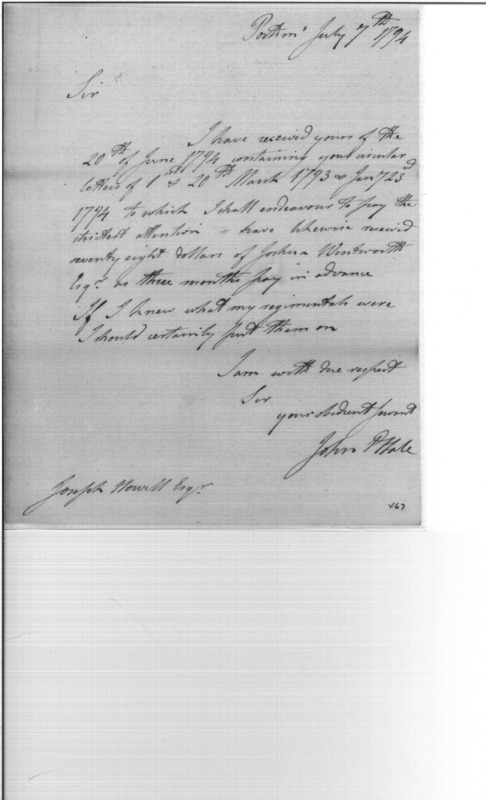 Portsmº July 7th 1794
Sir
I have received yours of the
20th of June 1794 containing your circular
letters of 1st & 20th March 1793 & Jany 23d
1794 to which I shall endeavour to pay the
strictest attention & have likewise received
seventy eight dollars of Joshua Wentworth
Esqr. as three months pay in advance
If I knew what my regimentals were
I should certainly put them on
I am with due respect
Sir
your obedient servant
John P Hale
Joseph Howell Esqr.
467